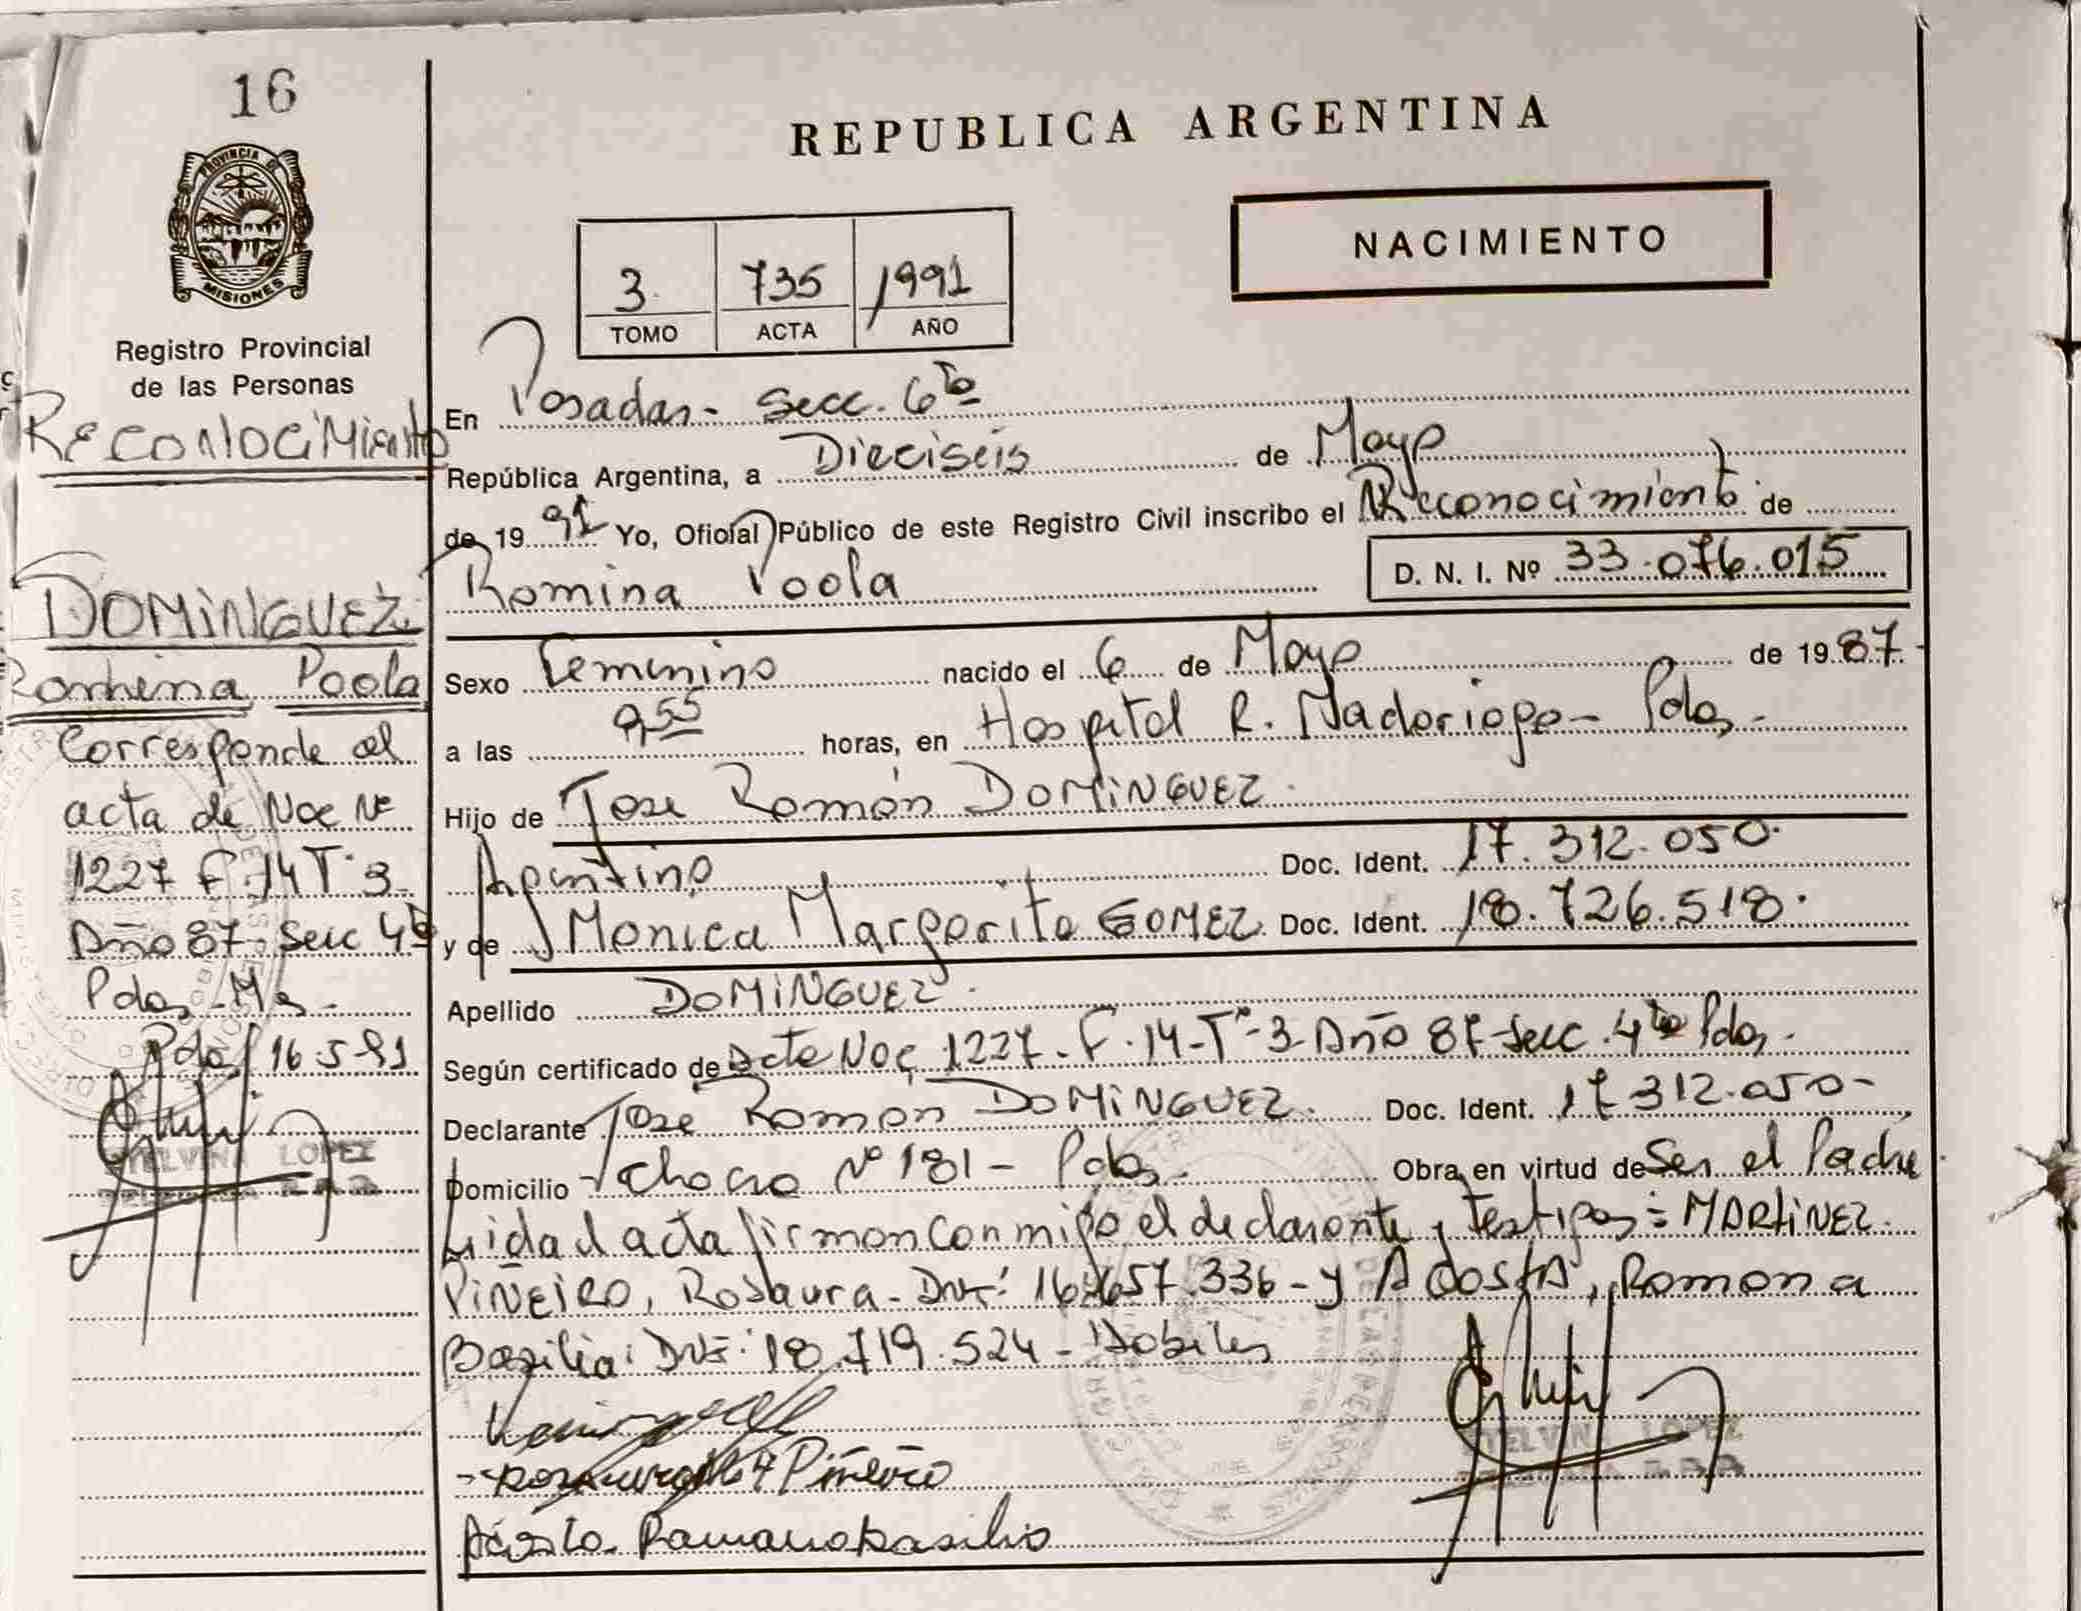 16
PROVINCIA DE
MISIONES
Registro Provincial
de las Personas
Reconocimiento
DOMINGUEZ
Romina Paola
Corresponde al
acta de Nac Nº
1227 F.14 Tº 3
Año 87. Secc 4ta
Pdas - Ms -
Pdas 16-5-91
ETELVINA LOPEZ
REPUBLICA ARGENTINA
NACIMIENTO
3 735 1991
TOMO ACTA AÑO
En Posadas - Secc. 6ta
República Argentina, a Dieciseis de Mayo
de 1991 Yo, Oficial Público de este Registro Civil inscribo el Reconocimiento de
Romina Paola D. N. I. Nº 33.076.015
Sexo Femenino nacido el 6 de Mayo de 1987.
a las 9,55 horas, en Hospital R. Madariaga - Pdas -
Hijo de Jose Ramón DOMINGUEZ.
Argentino Doc. Ident. 17.312.050.
y de Monica Margarita GOMEZ. Doc. Ident. 18.726.518.
Apellido DOMINGUEZ.
Según certificado de Acta Nac 1227. F.14-Tº-3-Año 87-Secc. 4ta Pdas.
Declarante José Ramon DOMINGUEZ. Doc. Ident. 17 312.050-
Domicilio Chaco Nº 181 - Pdas. Obra en virtud de Ser el Padre
Leida el acta firman conmigo el declarante y testigos: MARTINEZ
PIÑEIRO, Rosaura - DNI: 16.657.336 - y ACOSTA, Ramona
Basilia: DNI: 18.719.524 - Habiles
Piñeiro
Acosta Ramona Basilia
ETELVINA LOPEZ